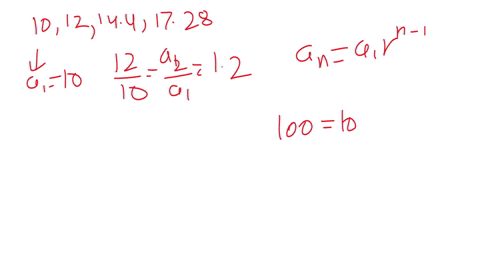 10, 12, 14.4, 17.28
↓
a₁=10
12/10 = a₂/a₁ = 1.2
aₙ = a₁ r^(n-1)
100 = 10